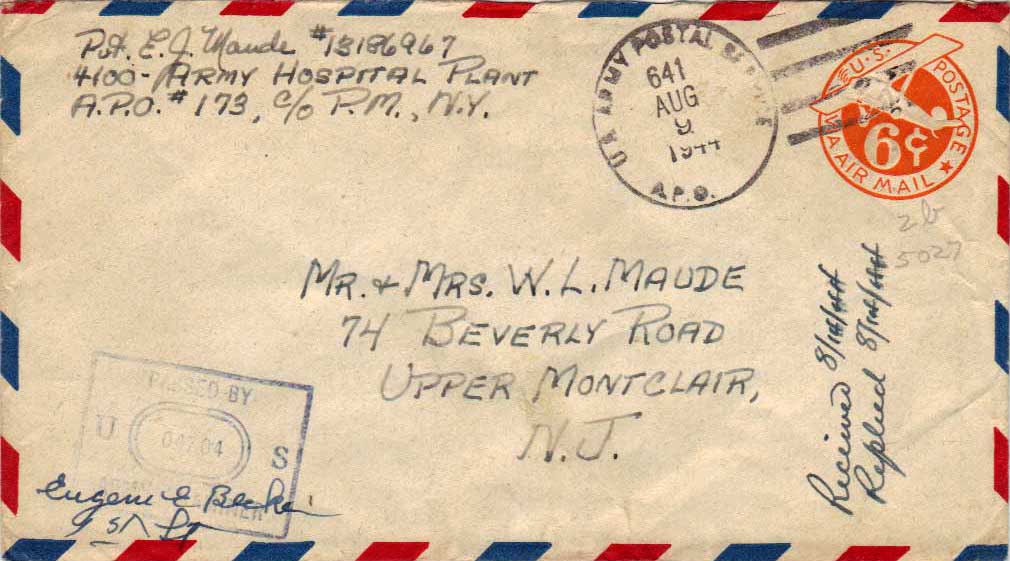 Pvt. E. J. Maude #13186967
4100 - ARMY HOSPITAL PLANT
A.P.O. #173, c/o P.M., N.Y.
U.S. ARMY POSTAL
641
AUG
9
1944
A.P.O.
U.S. POSTAGE
6¢
VIA AIR MAIL
2b
5027
MR. & MRS. W. L. MAUDE
74 BEVERLY ROAD
UPPER MONTCLAIR,
N.J.
Received 8/14/44
Replied 8/14/44
PASSED BY
U S
04204
ARMY EXAMINER
Eugene E
1st Lt